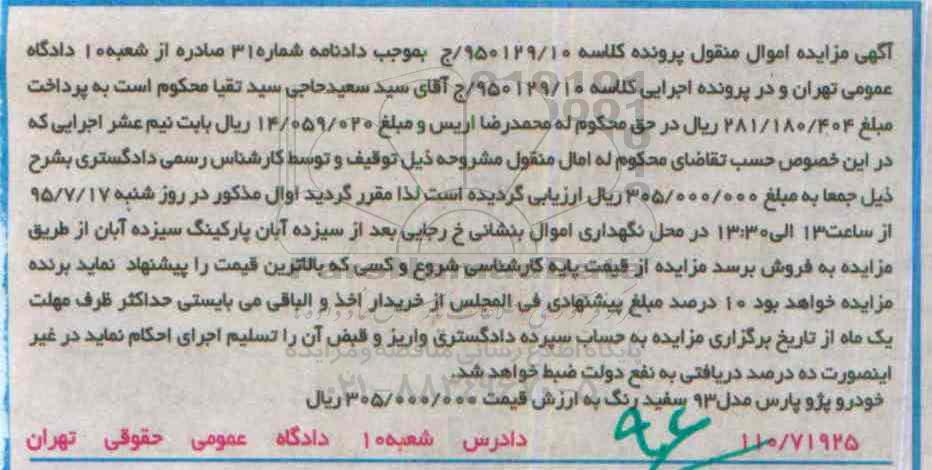 آگهی مزایده اموال منقول پرونده کلاسه ۹۵۰۱۲۹/۱۰/ج بموجب دادنامه شماره۳۱ صادره از شعبه۱۰ دادگاه
عمومی تهران و در پرونده اجرایی کلاسه ۹۵۰۱۲۹/۱۰/ج آقای سید سعیدحاجی سید تقیا محکوم است به پرداخت
مبلغ ۲۸۱/۱۸۰/۴۰۴ ریال در حق محکوم له محمدرضا اریس و مبلغ ۱۴/۰۵۹/۰۲۰ ریال بابت نیم عشر اجرایی که
در این خصوص حسب تقاضای محکوم له امال منقول مشروحه ذیل توقیف و توسط کارشناس رسمی دادگستری بشرح
ذیل جمعا به مبلغ ۳۰۵/۰۰۰/۰۰۰ ریال ارزیابی گردیده است لذا مقرر گردید اوال مذکور در روز شنبه ۹۵/۷/۱۷
از ساعت۱۳ الی۱۳:۳۰ در محل نگهداری اموال بنشانی خ رجایی بعد از سیزده آبان پارکینگ سیزده آبان از طریق
مزایده به فروش برسد مزایده از قیمت پایه کارشناسی شروع و کسی که بالاترین قیمت را پیشنهاد نماید برنده
مزایده خواهد بود ۱۰ درصد مبلغ پیشنهادی فی المجلس از خریدار اخذ و الباقی می بایستی حداکثر ظرف مهلت
یک ماه از تاریخ برگزاری مزایده به حساب سپرده دادگستری واریز و قبض آن را تسلیم اجرای احکام نماید در غیر
پایگاه اطلاع رسانی مناقصه و مزایده
اینصورت ده درصد دریافتی به نفع دولت ضبط خواهد شد.
خودرو پژو پارس مدل۹۳ سفید رنگ به ارزش قیمت ۳۰۵/۰۰۰/۰۰۰ ریال
۱۱۰/۷۱۹۲۵ دادرس شعبه۱۰ دادگاه عمومی حقوقی تهران